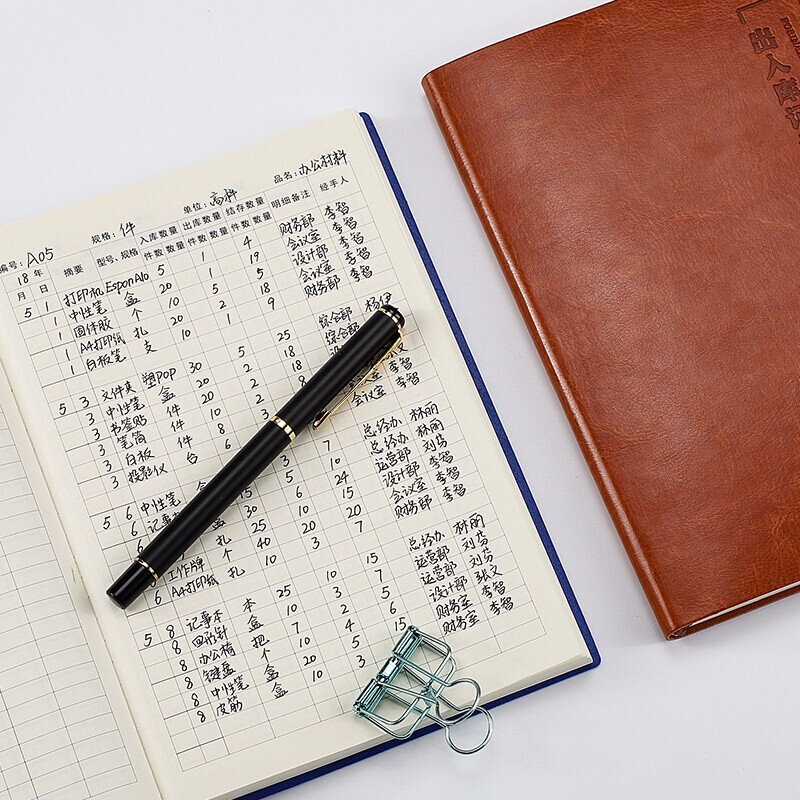 品名：办公材料
单位：高科
规格：件
编号：A05
18年 摘要 型号、规格 入库数量 出库数量 结存数量 明细备注 经手人
月 日 件数 数量 件数 数量 件数 数量
5 1 打印机 EsponAlo 5 1 4 财务部 李智
1 中性笔 盒 20 1 19 会议室 李智
1 固体胶 个 10 5 5 设计部 李智
1 A4打印纸 扎 20 2 18 会议室 李智
1 白板笔 支 10 1 9 财务部 李智
5 3 文件夹 塑pop 30 5 25 综合部 杨伊
3 中性笔 盒 20 2 18 综合部
3 书签贴 件 20 2 18
3 笔筒 件 10 2 8
3 白板 件 8 3 李智
3 投影仪 台 6 会议室 李智
5 6 中性笔 3 7 总经办 林丽
6 记事本 15 6 24 运营部 刘芬
30 10 15 设计部 李智
25 20 20 会议室 李智
6 工作牌 个 40 3 7 财务部 李智
6 A4打印纸 扎 10
5 8 记事本 本 25 10 15 总经办 林丽
8 回形针 盒 10 3 7 运营部 刘芬
8 办公椅 把 7 2 5 运营部 刘芬
8 键盘 个 10 4 6 设计部 张文
8 中性笔 盒 20 5 15 财务室 李智
8 皮筋 盒 10 3 财务室 李智
出入库